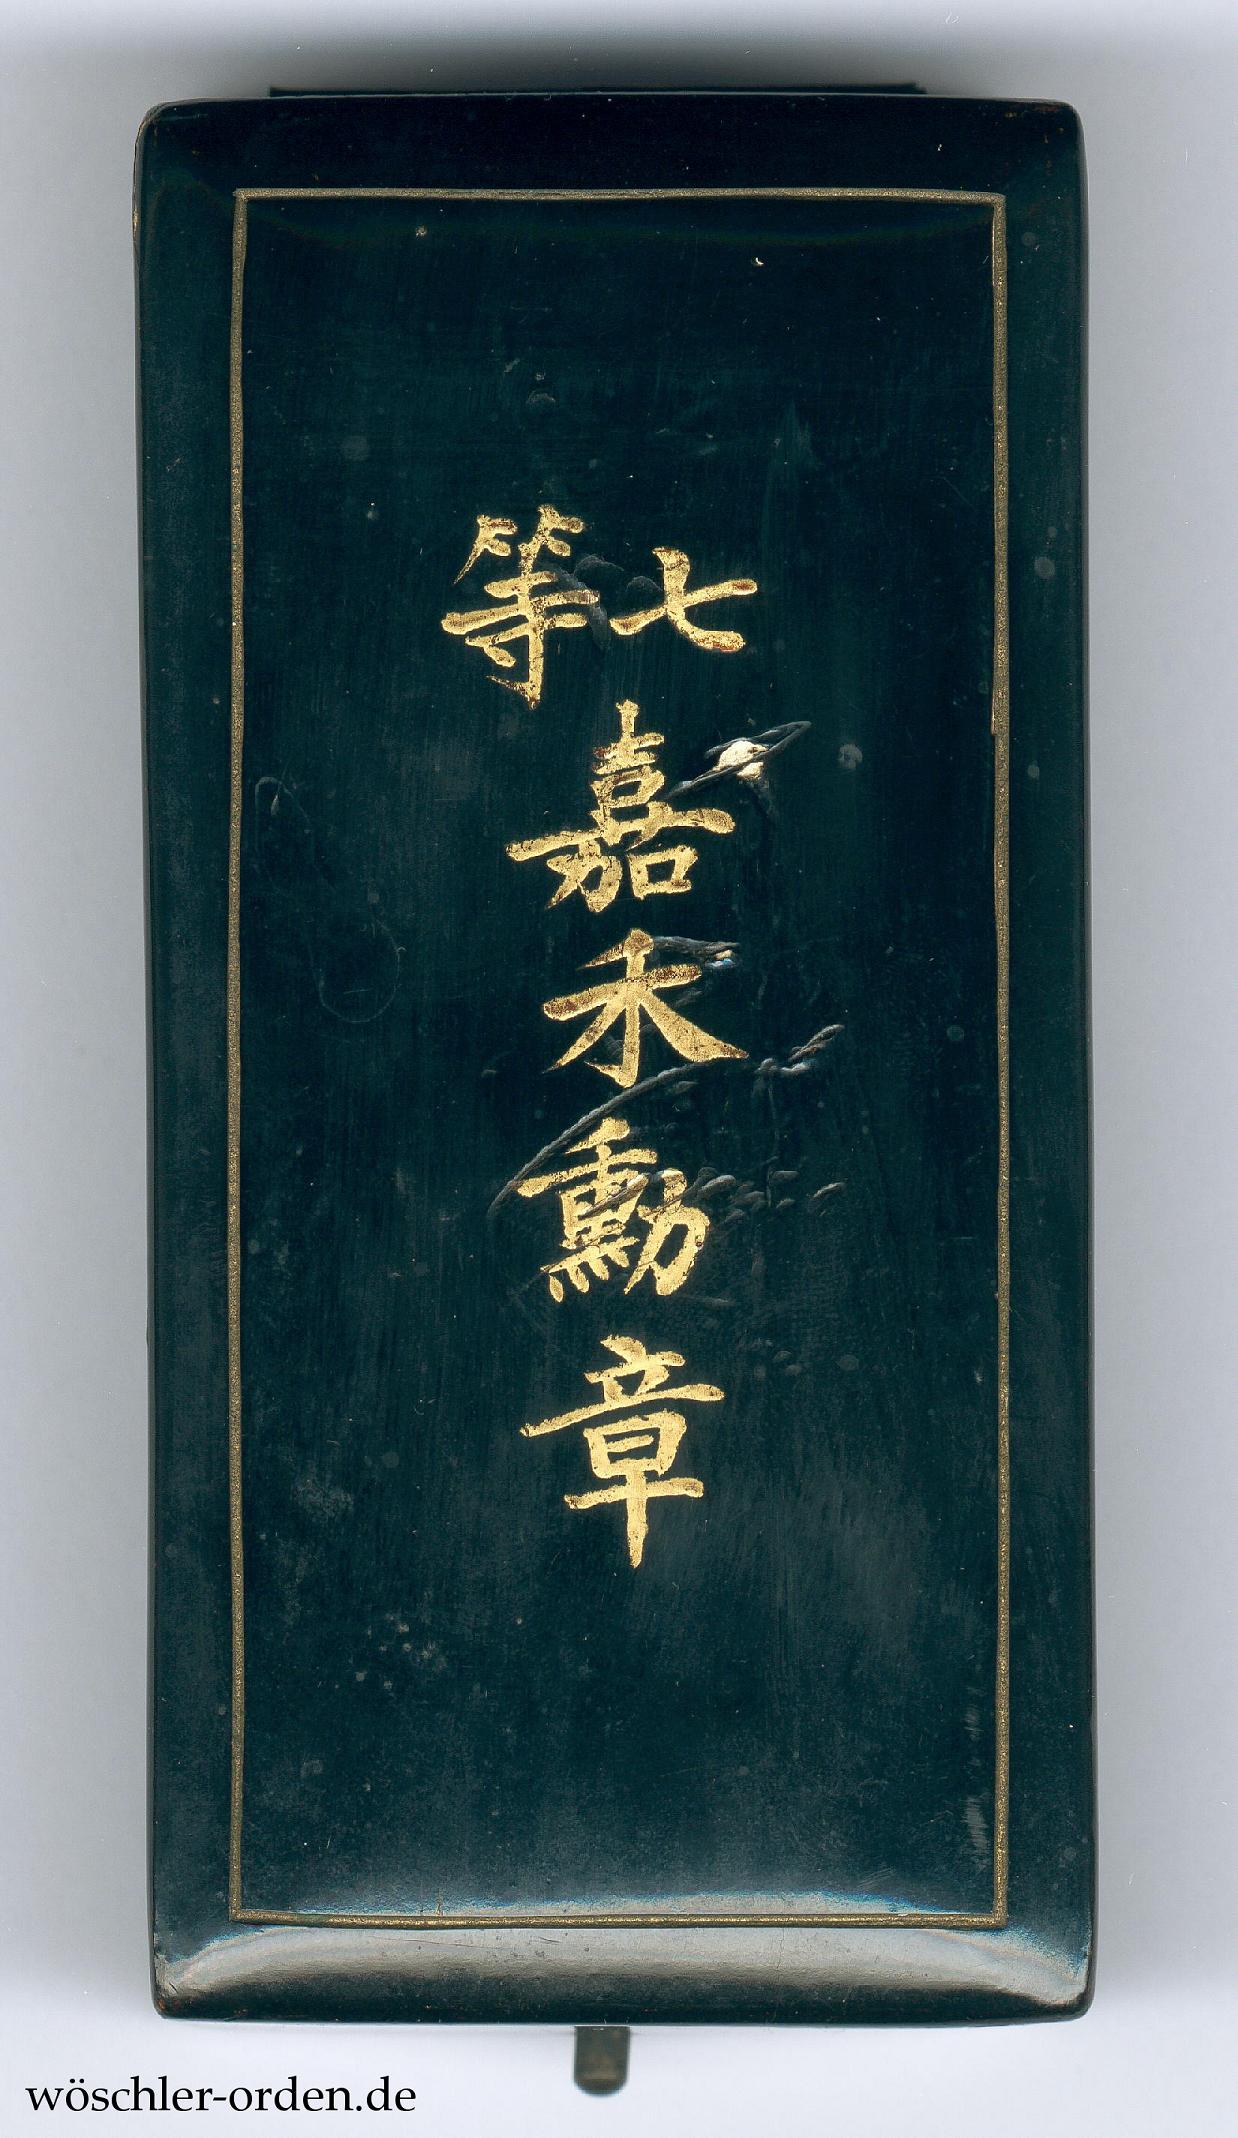 七等
嘉禾勳章
wöschler-orden.de